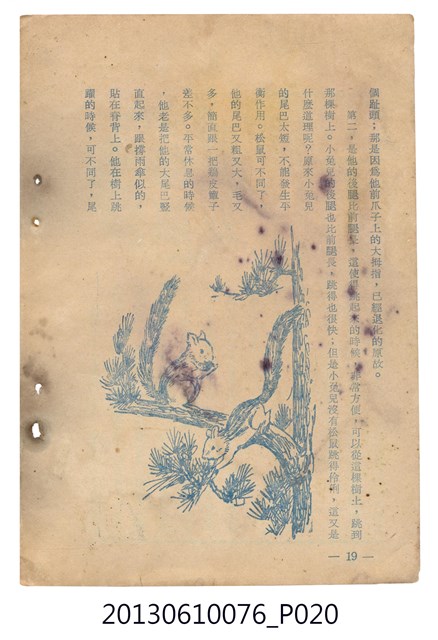 個趾頭；那是因爲他前爪子上的大拇指，已經退化的原故。
第二，是他的後腿比前腿長，這使他跳起來的時候，非常方便，可以從這棵樹上，跳到
那棵樹上。小兔兒的後腿也比前腿長，跳得也很快；但是小兔兒沒有松鼠跳得伶俐，這又是
什麼道理呢？原來小兔兒
的尾巴太短，不能發生平
衡作用。松鼠可不同了，
他的尾巴又粗又大，毛又
多，簡直跟一把雞皮撢子
差不多。平常休息的時候
，他老是把他的大尾巴豎
直起來，跟撐雨傘似的，
貼在脊背上。他在樹上跳
躍的時候，可不同了，尾
— 19 —
20130610076_P020